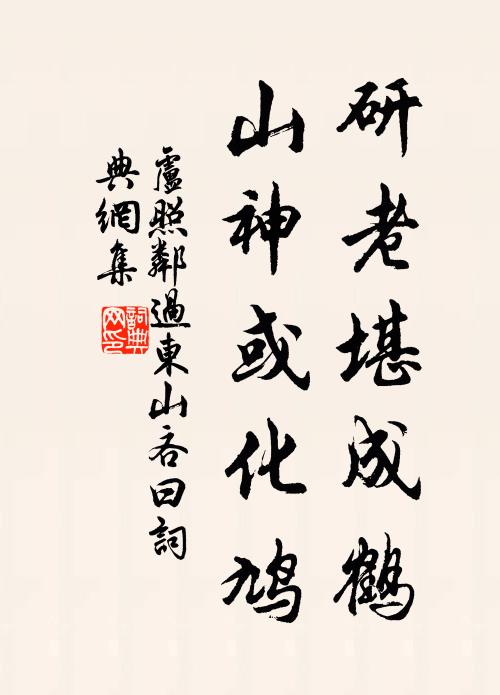 研老堪成鶴
山神或化鳩
盧照鄰過東山谷曰詞
典網集
詞典
网印